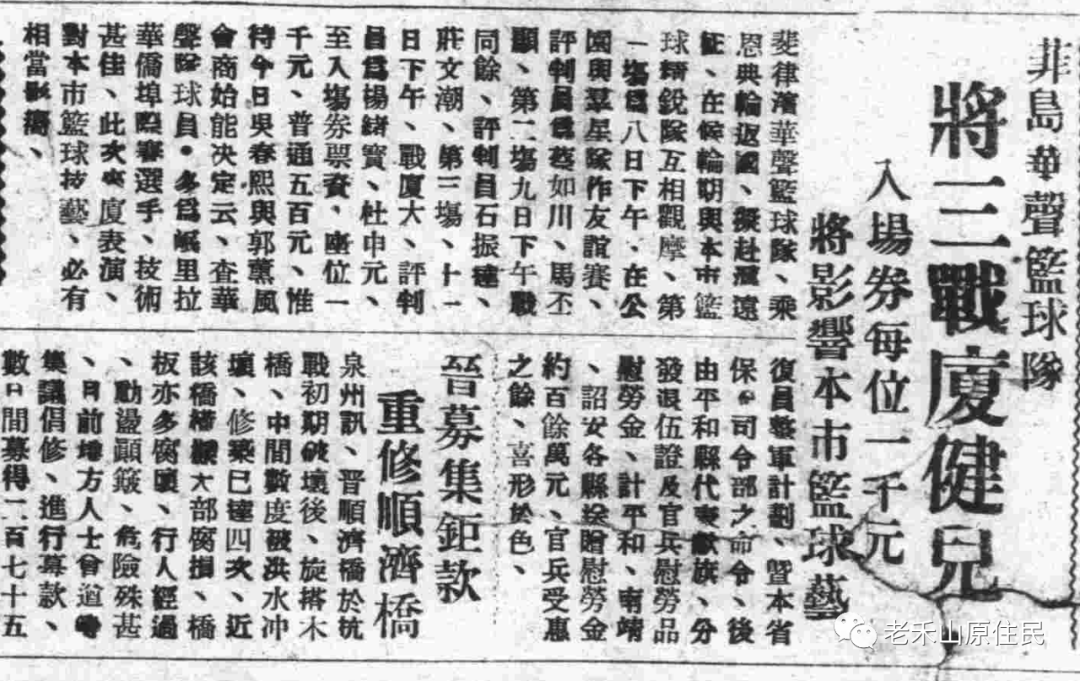 菲島華聲籃球隊
將三戰廈健兒
入場券每位一千元
將影響本市籃球藝
斐律濱華聲籃球隊、乘
恩典輪返國、擬赴滬遠
征、在候輪期與本市籃
球精銳隊互相觀摩、第
一場爲八日下午、在公
園與羣星隊作友誼賽、
評判員爲蔡如川、馬丕
顯、第二場九日下午戰
同餘、評判員石振達、
莊文潮、第三場、十一
日下午、戰厦大、評判
員爲楊緒寶、杜申元、
至入場券票資、座位一
千元、普通五百元、惟
待今日吳春熙與郭薰風
會商始能决定云、查華
聲隊球員・多爲岷里拉
華僑埠際賽選手、技術
甚佳、此次來廈表演、
對本市籃球技藝、必有
相當影響、
復員整軍計劃、暨本省
保司令部之命令、後
由平和縣代表獻旗、分
發退伍證及官兵慰勞品
慰勞金、計平和、南靖
、詔安各縣塗贈慰勞金
約百餘萬元、官兵受惠
之餘、喜形於色、
晉募集鉅款
重修順濟橋
泉州訊、晋順濟橋於抗
戰初期破壞後、旋搭木
橋、中間數度被洪水冲
壞、修築已達四次、近
該橋樁樑大部腐損、橋
板亦多腐壞、行人經過
、動盪顚簸、危險殊甚
、日前地方人士曾道
集議倡修、進行募款、
數日間募得二百七十五
老禾山原住民